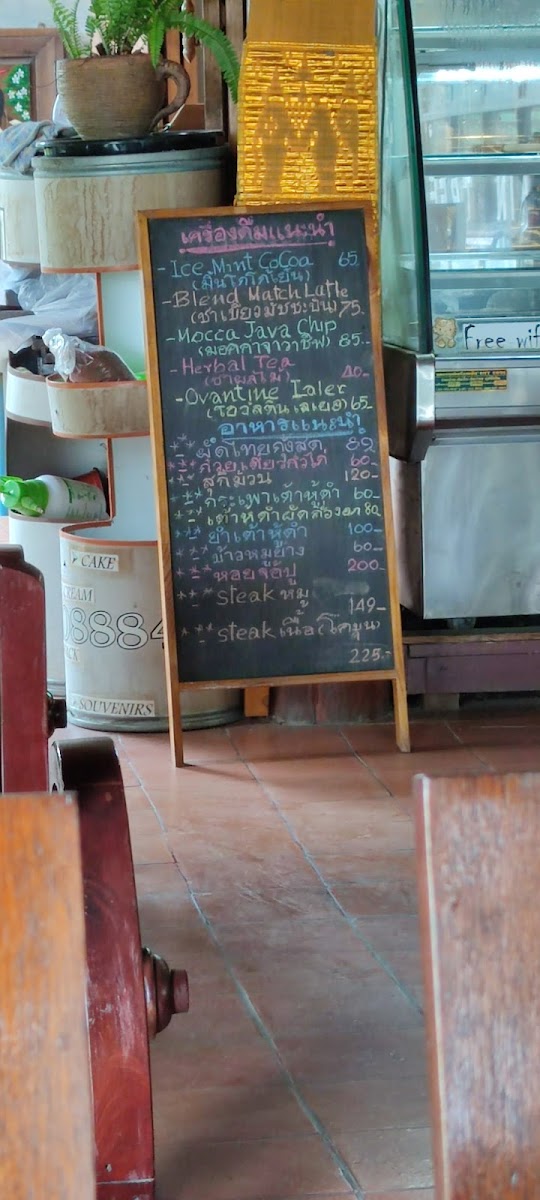 เครื่องดื่มแนะนำ
- Ice Mint CoCoa 65
(มินโกโก้เย็น)
- Blend Match Latte
(ชาเขียวมัชชะปั่น) 75.-
- Mocca Java Chip
(มอคคาจาวาชิฟ) 85.-
- Herbal Tea
(ชาผลไม้) 40.-
- Ovantine Laler
(โอวัลตินเลเยอ) 65-
อาหารแนะนำ
ผัดไทยกุ้งสด 89
ก๋วยเตี๋ยวคั่วไก่ 60-
สุกี้ม้วน 120-
กระเพาเต้าหู้ดำ 60-
เต้าหู้ดำผัด 89
ยำเต้าหู้ดำ 100-
ข้าวหมูย่าง 60-
หอยจ๊อปู 200-
steak หมู
149-
steak เนื้อ (โคขุน)
225.-
Free wifi
CAKE
CREAM
08884
SOUVENIRS